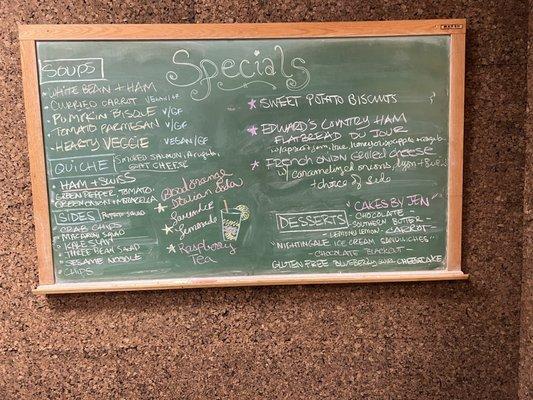 Specials
SOUPS
WHITE BEAN + HAM
CURRIED CARROT VEGAN/GF
PUMPKIN BISQUE V/GF
TOMATO PARMESAN V/GF
HEARTY VEGGIE VEGAN/GF
QUICHE SMOKED SALMON, Arugula,
GOAT CHEESE
HAM + SWISS
GREEN PEPPER, TOMATO,
GREEN ONION
SIDES POTATO SALAD
CRAB CHIPS
MACARONI SALAD
KALE SLAW
THREE BEAN SALAD
SESAME NOODLE
CHIPS
Blood Orange
Italian Soda
Lavender
Lemonade
Raspberry
Tea
SWEET POTATO BISCUITS
EDWARD'S COUNTRY HAM
FLATBREAD DU JOUR
FRENCH ONION Grilled CHEESE
w/ caramelized onions,
+ choice of side
DESSERTS
"CAKES BY JEN"
- CHOCOLATE -
- SOUTHERN BUTTER -
- LEMONY LEMON - CARROT -
"NIGHTINGALE ICE CREAM SANDWICHES"
- CHOCOLATE BLACKOUT -
GLUTEN FREE BLUEBERRY CHEESECAKE